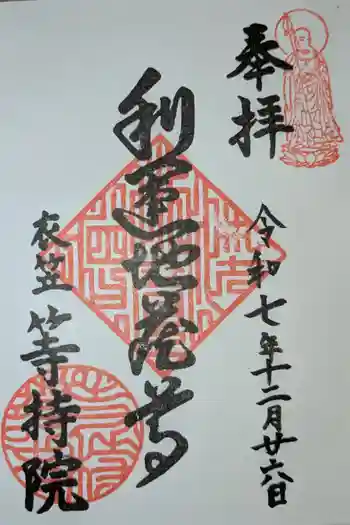 奉拝
令和七年十二月廿六日
利運地蔵尊
衣笠 等持院